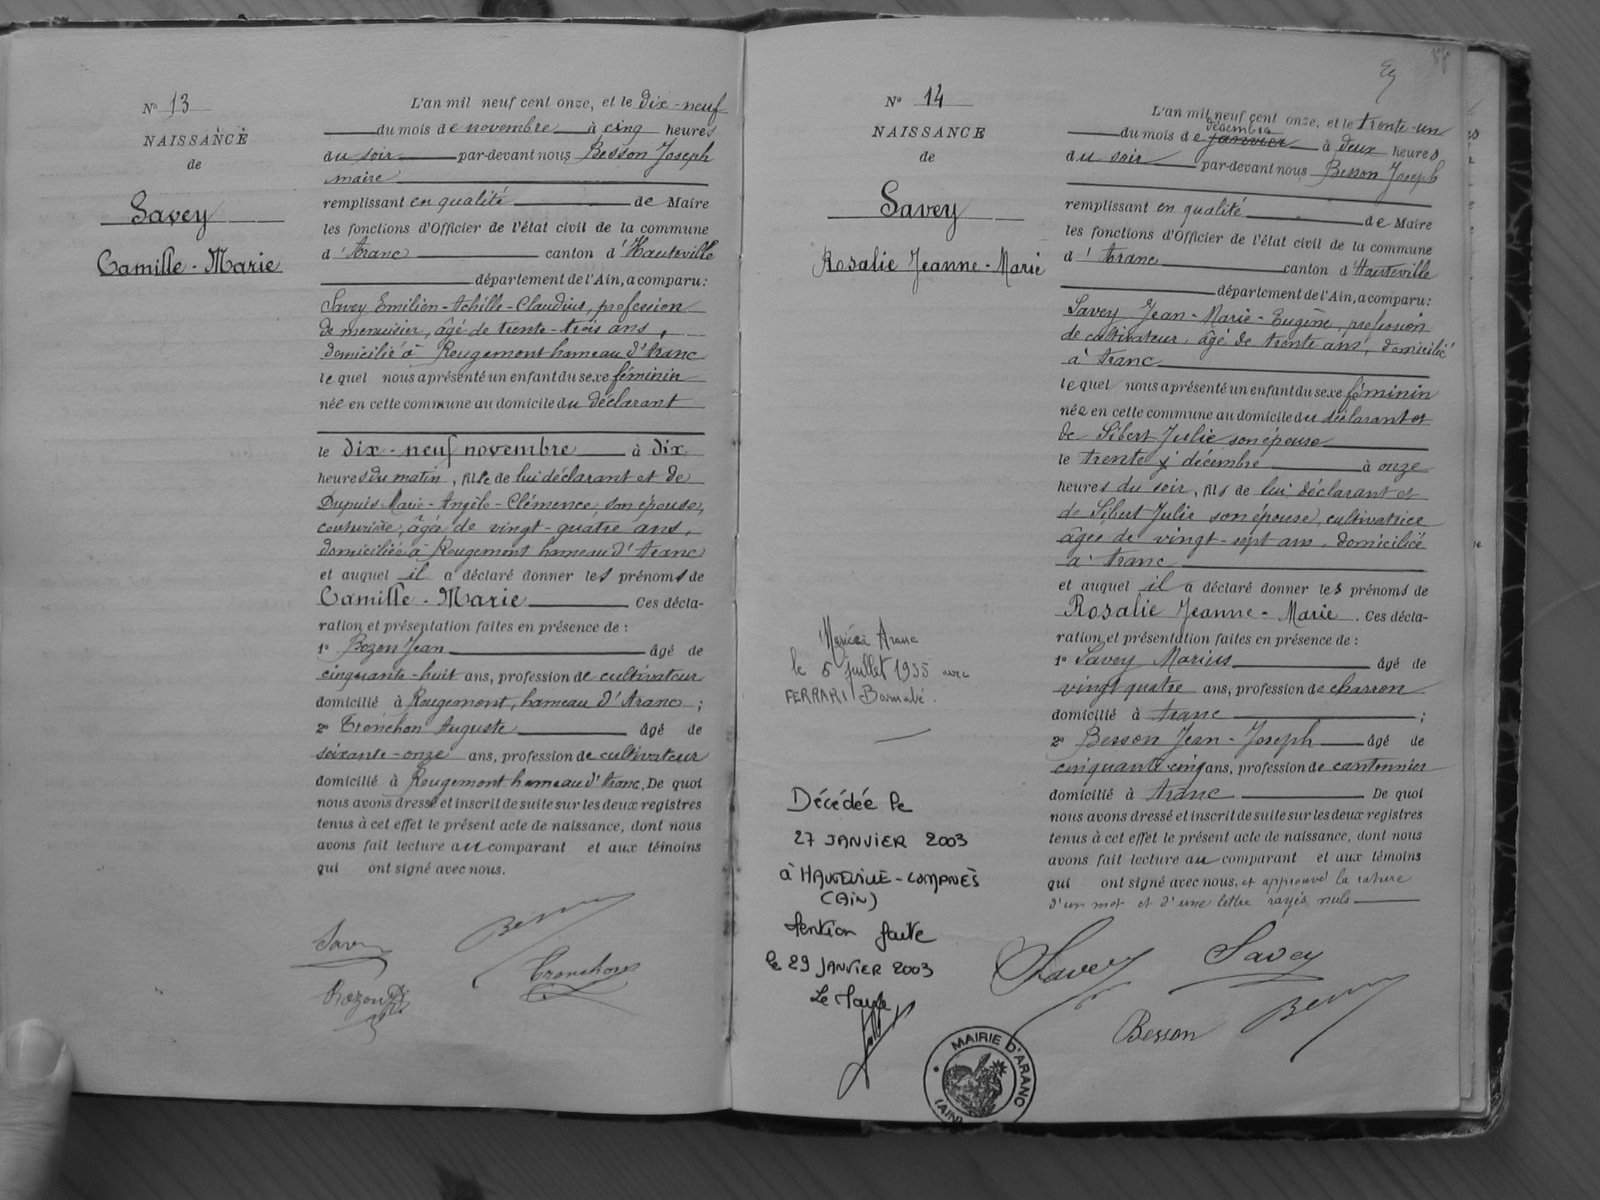 N° 13
NAISSANCE
de
Savey
Camille-Marie
L'an mil neuf cent onze, et le dix-neuf
du mois de novembre à cinq heures
du soir par-devant nous Besson Joseph
maire
remplissant en qualité de Maire
les fonctions d'Officier de l'état civil de la commune
d'Aranc canton d'Hauteville
département de l'Ain, a comparu:
Savey Emilien-Achille-Claudius, profession
de menuisier, âgé de trente-trois ans,
domicilié à Rougemont hameau d'Aranc
lequel nous a présenté un enfant du sexe féminin
née en cette commune au domicile du déclarant
le dix-neuf novembre à dix
heures du matin, fille de lui déclarant et de
Dupuis Marie-Angèle-Clémence, son épouse,
couturière, âgée de vingt-quatre ans,
domiciliée à Rougemont hameau d'Aranc
et auquel il a déclaré donner les prénoms de
Camille-Marie Ces décla-
ration et présentation faites en présence de:
1° Bozon Jean âgé de
cinquante-huit ans, profession de cultivateur
domicilié à Rougemont, hameau d'Aranc;
2° Tronchon Auguste âgé de
soixante-onze ans, profession de cultivateur
domicilié à Rougemont hameau d'Aranc. De quoi
nous avons dressé et inscrit de suite sur les deux registres
tenus à cet effet le présent acte de naissance, dont nous
avons fait lecture au comparant et aux témoins
qui ont signé avec nous.
Savey
Bozon
Tronchon
N° 14
NAISSANCE
de
Savey
Rosalie Jeanne-Marie
Marié à Aranc
le 5 Juillet 1955 avec
FERRARI Barnabé.
Décédée le
27 JANVIER 2003
à HAUTEVILLE-LOMPNES
(AIN)
Mention faite
le 29 JANVIER 2003
Le Maire
MAIRIE D'ARANC
(AIN)
L'an mil neuf cent onze, et le trente-un
décembre
du mois de janvier à deux heures
du soir par-devant nous Besson Joseph
remplissant en qualité de Maire
les fonctions d'Officier de l'état civil de la commune
d'Aranc canton d'Hauteville
département de l'Ain, a comparu:
Savey Jean-Marie-Eugène, profession
de cultivateur, âgé de trente ans, domicilié
à Aranc
lequel nous a présenté un enfant du sexe féminin
née en cette commune au domicile du déclarant et
de Sibert Julie son épouse
le trente décembre à onze
heures du soir, fils de lui déclarant et
de Sibert Julie son épouse, cultivatrice
âgée de vingt-sept ans, domiciliée
à Aranc
et auquel il a déclaré donner les prénoms de
Rosalie Jeanne-Marie. Ces décla-
ration et présentation faites en présence de:
1° Savey Marius âgé de
vingt quatre ans, profession de charron
domicilié à Aranc;
2° Besson Jean-Joseph âgé de
cinquante cinq ans, profession de cantonnier
domicilié à Aranc De quoi
nous avons dressé et inscrit de suite sur les deux registres
tenus à cet effet le présent acte de naissance, dont nous
avons fait lecture au comparant et aux témoins
qui ont signé avec nous, et approuvé la rature
d'un mot et d'une lettre rayés nuls
Savey Savey
Besson